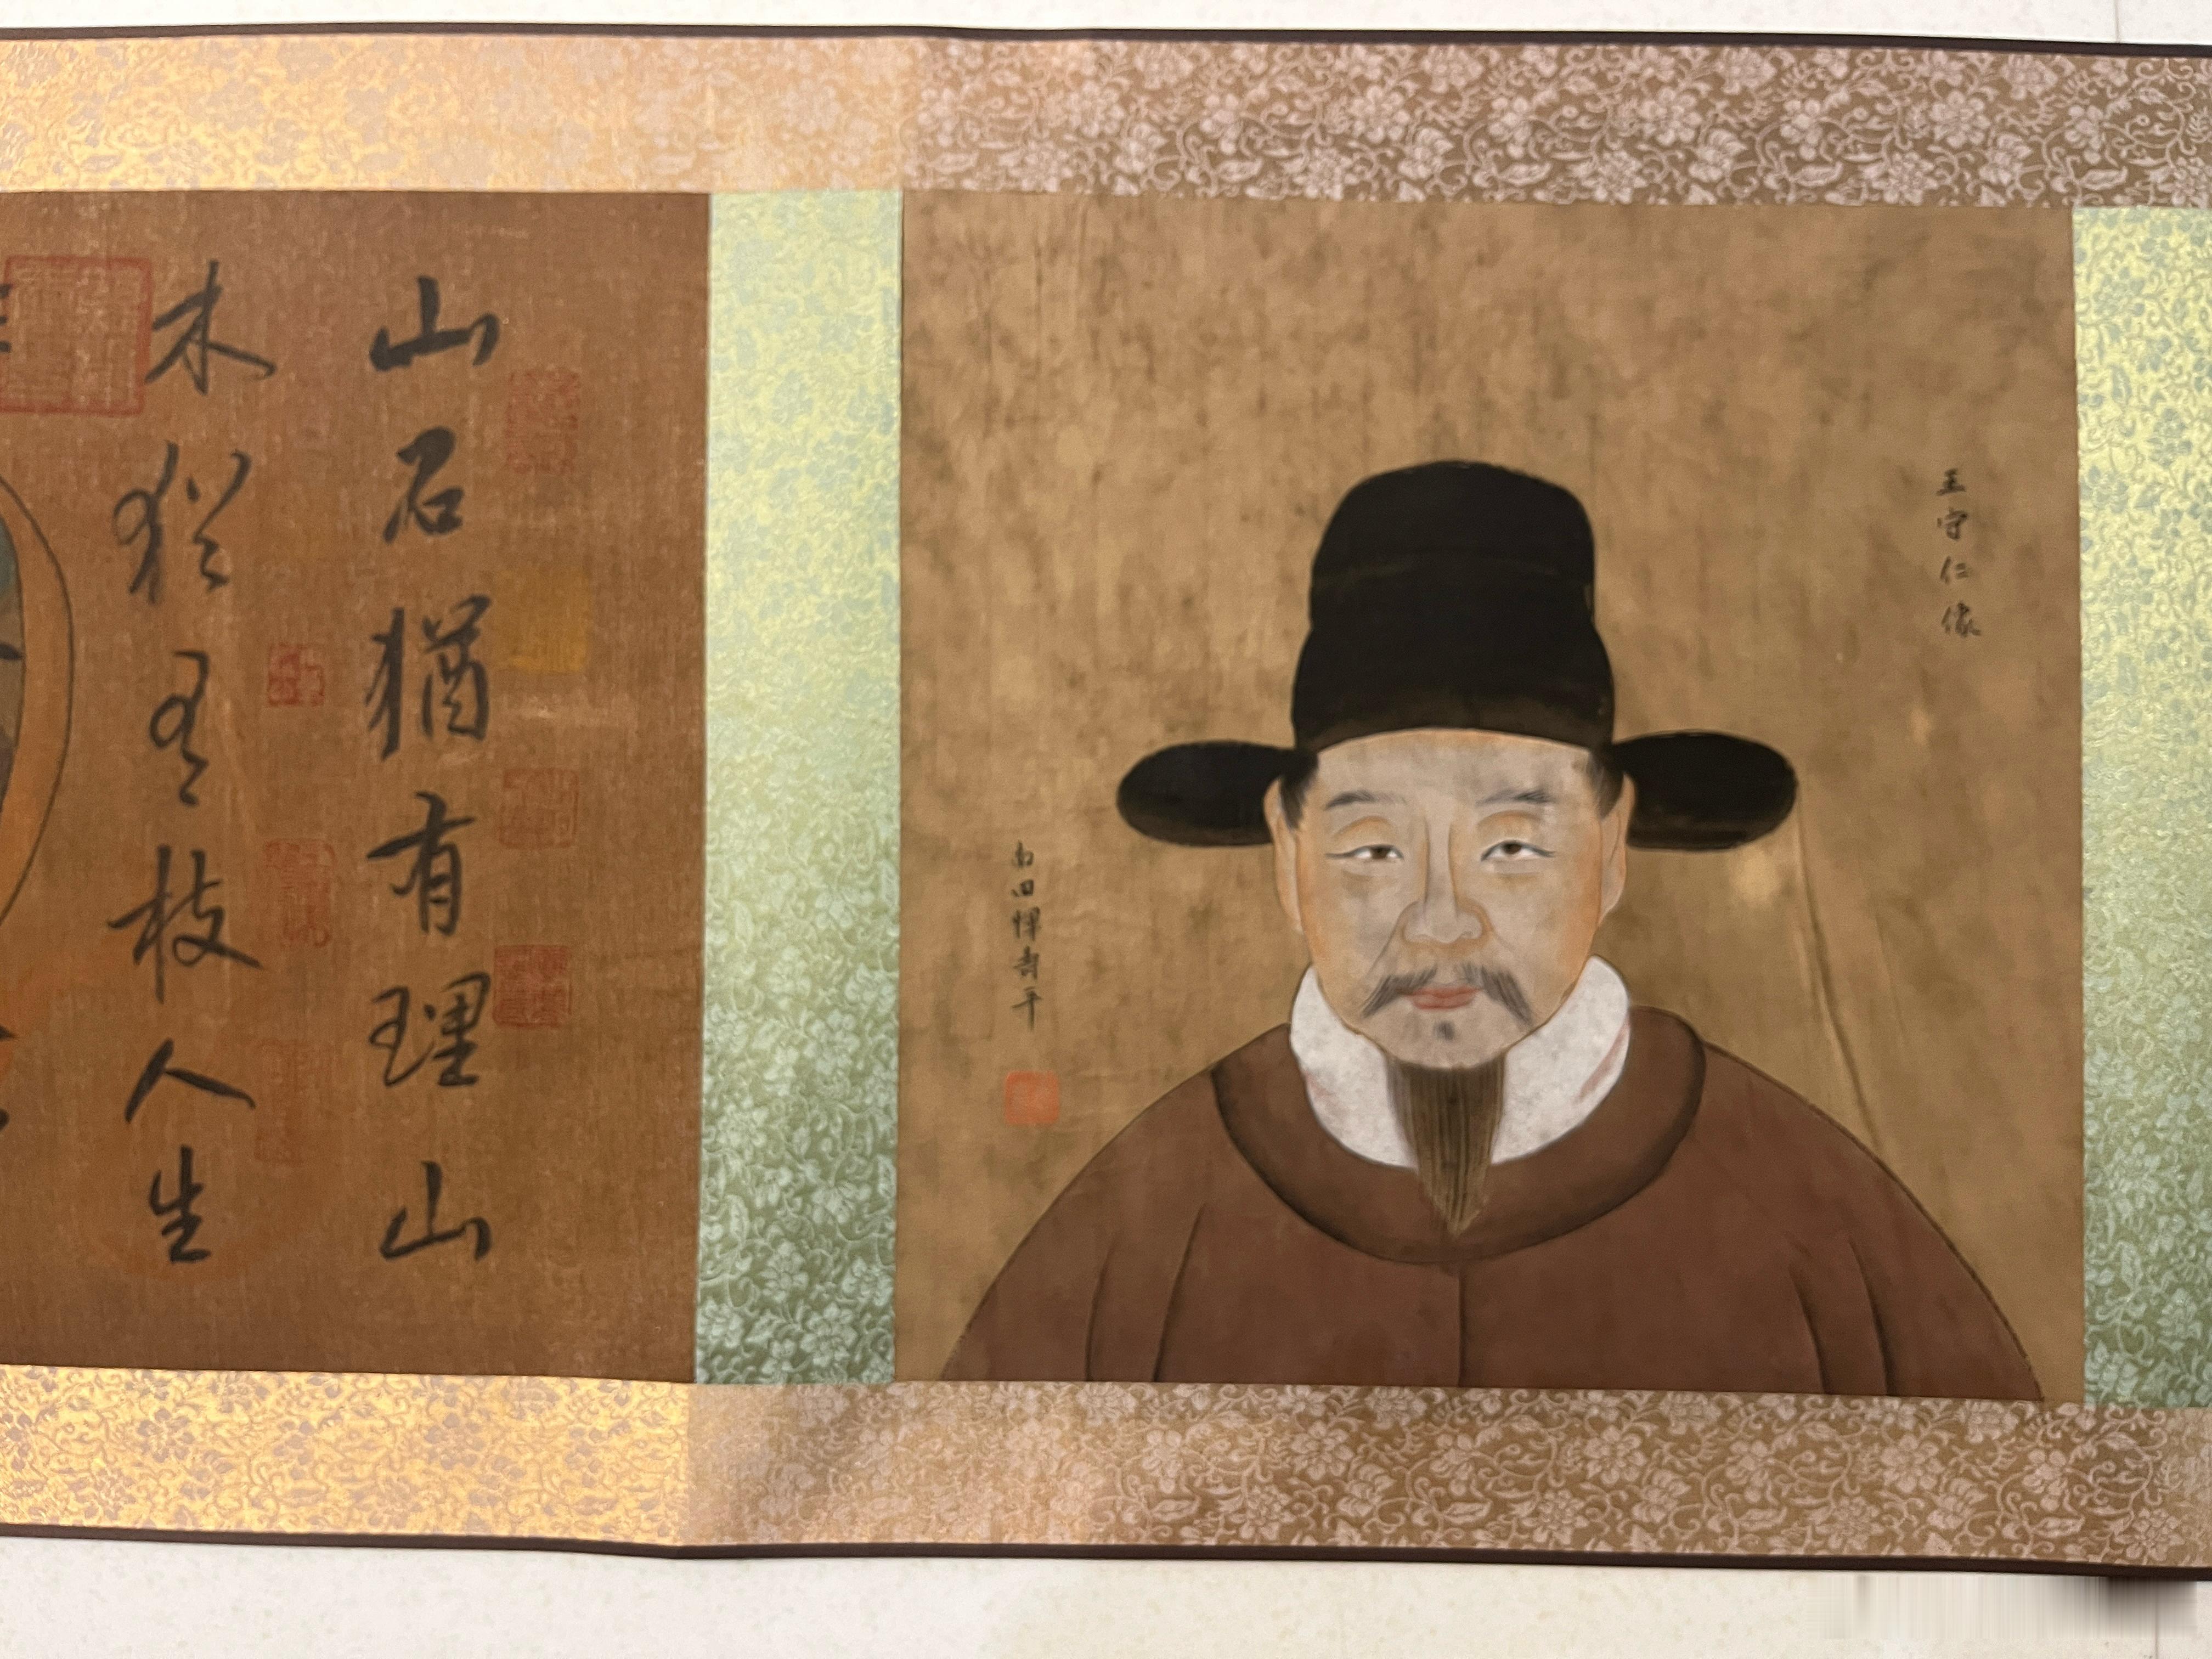 王守仁像
南田惲壽平
山石猶有理山
木猶有枝人生